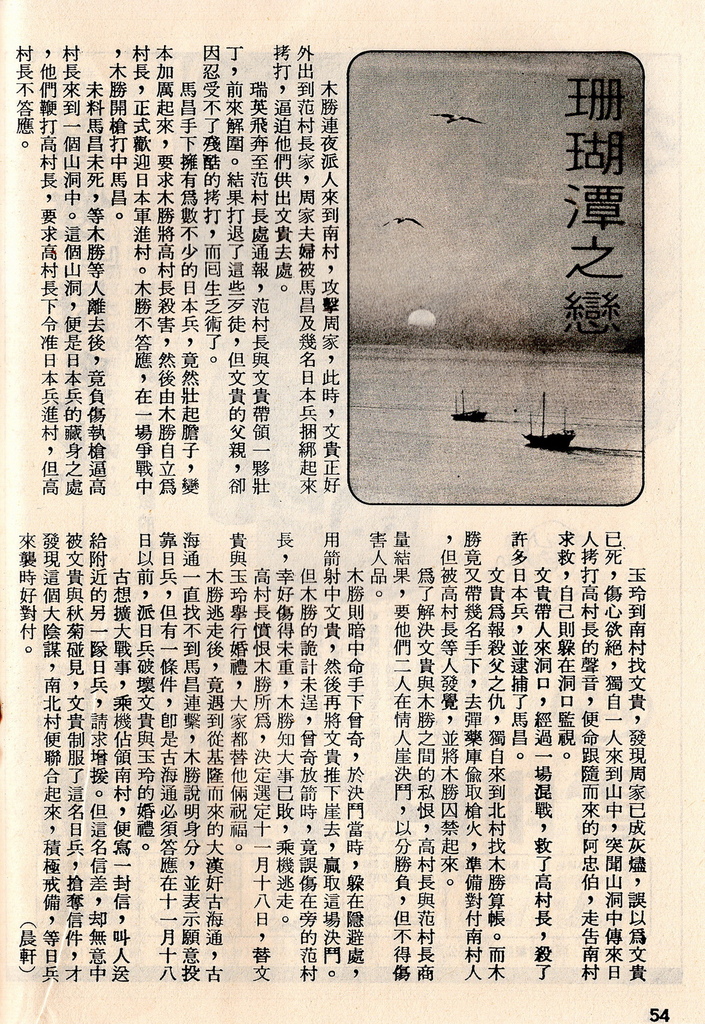 珊瑚潭之戀
木勝連夜派人來到南村，攻擊周家，此時，文貴正好
外出到范村長家，周家夫婦被馬昌及幾名日本兵捆綁起來
拷打，逼迫他們供出文貴去處。
瑞英飛奔至范村長處通報，范村長與文貴帶領一夥壯
丁，前來解圍。結果打退了這些歹徒，但文貴的父親，卻
因忍受不了殘酷的拷打，而回生乏術了。
馬昌手下擁有爲數不少的日本兵，竟然壯起膽子，變
本加厲起來，要求木勝將高村長殺害，然後由木勝自立爲
村長，正式歡迎日本軍進村。木勝不答應，在一場爭戰中
，木勝開槍打中馬昌。
未料馬昌未死，等木勝等人離去後，竟負傷執槍逼高
村長來到一個山洞中。這個山洞，便是日本兵的藏身之處
，他們鞭打高村長，要求高村長下令准日本兵進村，但高
村長不答應。
玉玲到南村找文貴，發現周家已成灰燼，誤以爲文貴
已死，傷心欲絕，獨自一人來到山中，突聞山洞中傳來日
人拷打高村長的聲音，便命跟隨而來的阿忠伯，走告南村
求救，自己則躲在洞口監視。
文貴帶人來洞口，經過一場混戰，救了高村長，殺了
許多日本兵，並逮捕了馬昌。
文貴爲報殺父之仇，獨自來到北村找木勝算帳。而木
勝竟又帶幾名手下，去彈藥庫偸取槍火，準備對付南村人
，但被高村長等人發覺，並將木勝囚禁起來。
爲了解決文貴與木勝之間的私恨，高村長與范村長商
量結果，要他們二人在情人崖決鬥，以分勝負，但不得傷
害人品。
木勝則暗中命手下曾奇，於決鬥當時，躲在隱避處，
用箭射中文貴，然後再將文貴推下崖去，贏取這場決鬥。
但木勝的詭計未逞，曾奇放箭時，竟誤傷在旁的范村
長，幸好傷得未重，木勝知大事已敗，乘機逃走。
高村長憤恨木勝所爲，決定選定十一月十八日，替文
貴與玉玲舉行婚禮，大家都替他倆祝福。
木勝逃走後，竟遇到從基隆而來的大漢奸古海通，古
海通一直找不到馬昌連繫，木勝說明身分，並表示願意投
靠日兵，但有一條件，卽是古海通必須答應在十一月十八
日以前，派日兵破壞文貴與玉玲的婚禮。
古想擴大戰事，乘機佔領南村，便寫一封信，叫人送
給附近的另一隊日兵，請求增援。但這名信差，却無意中
被文貴與秋菊碰見，文貴制服了這名日兵，搶奪信件，才
發現這個大陰謀，南北村便聯合起來，積極戒備，等日兵
來襲時好對付。
（晨軒）
54